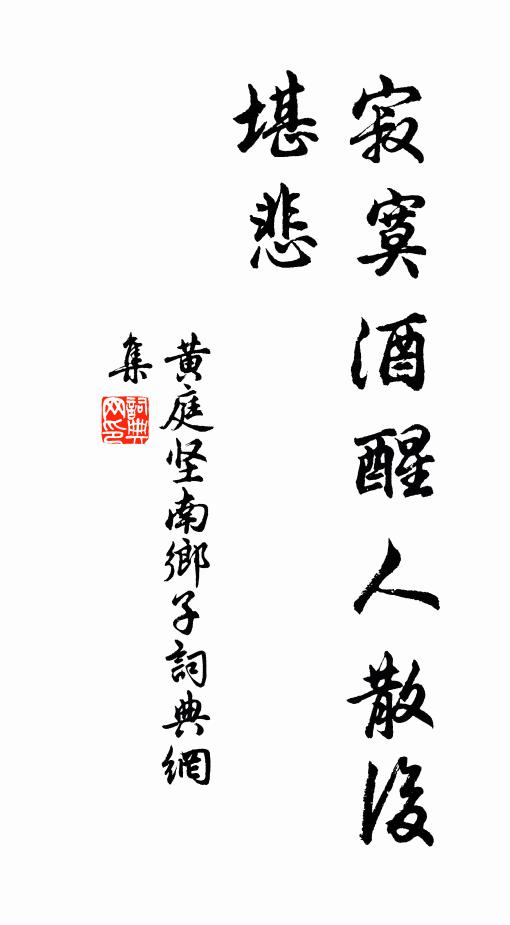 寂寞酒醒人散後
堪悲
黄庭坚南鄉子詞典網
集
詞典网印